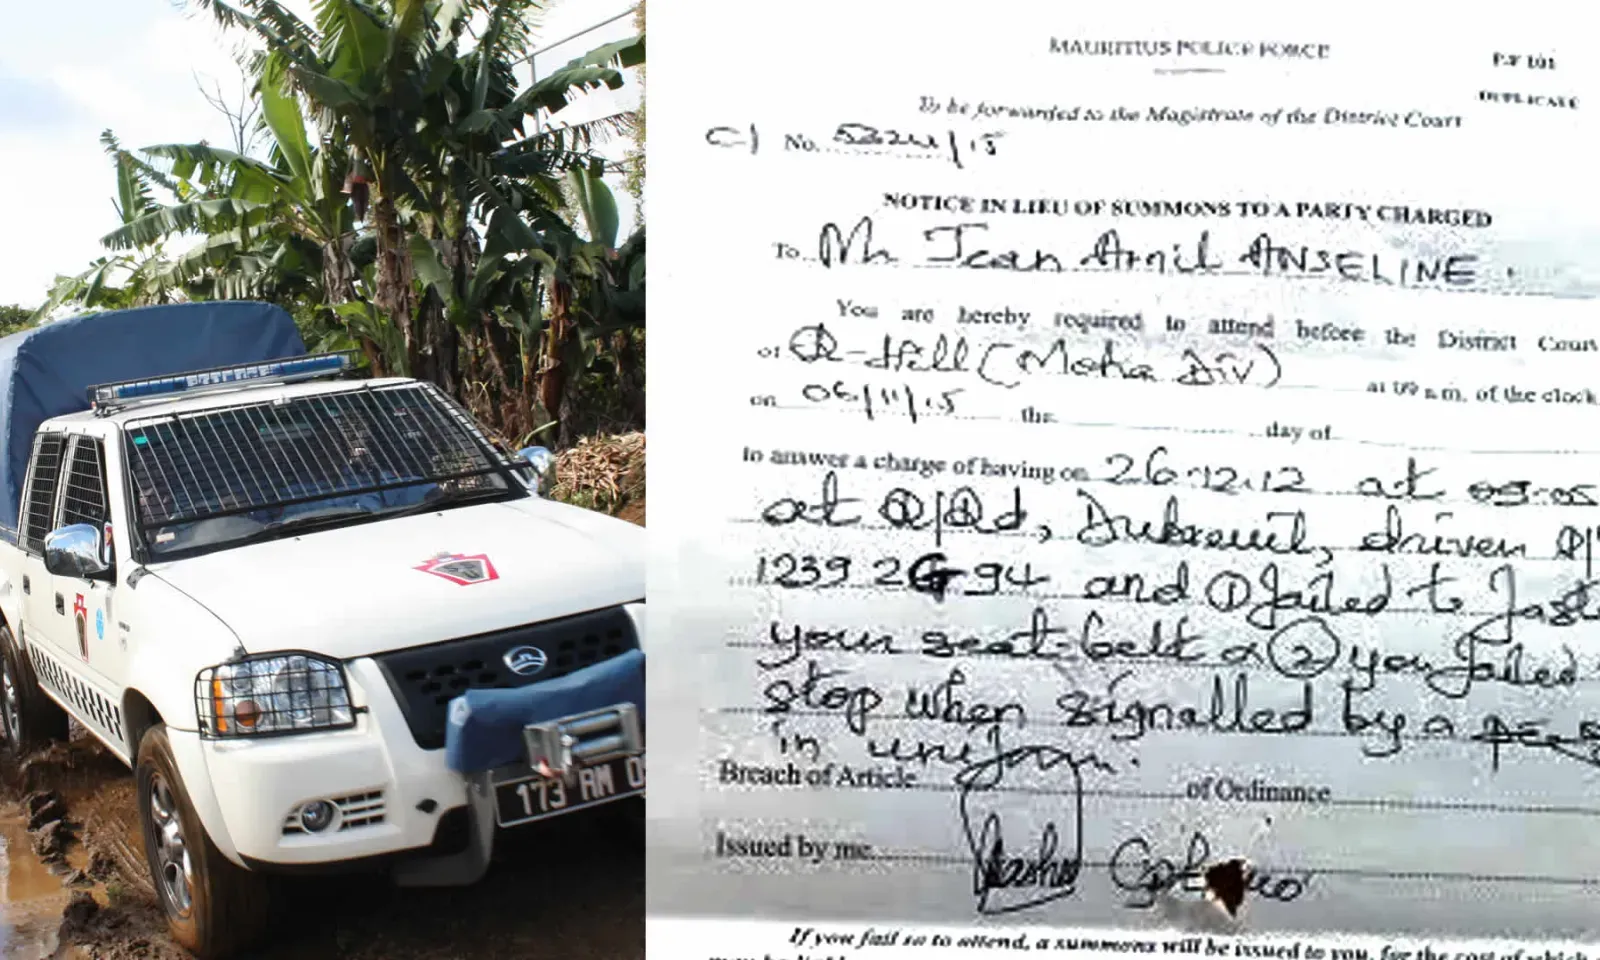 173 RM 0
MAURITIUS POLICE FORCE
P.F 101
DUPLICATE
To be forwarded to the Magistrate of the District Court
No.
/15
NOTICE IN LIEU OF SUMMONS TO A PARTY CHARGED
To Mr Jean ANSELINE
You are hereby required to attend before the District Court
of R-Hill (Moka Div) at 09 a.m. of the clock
on 06/11/15 the day of
to answer a charge of having on 26.12.12 at
at Rd, Dubreuil, driven
1239 2G 94 and ① failed to
your seat-belt & ② you failed
stop when signalled by a
in uniform.
Breach of Article of Ordinance
Issued by me
If you fail so to attend, a summons will be issued to you, for the cost of which